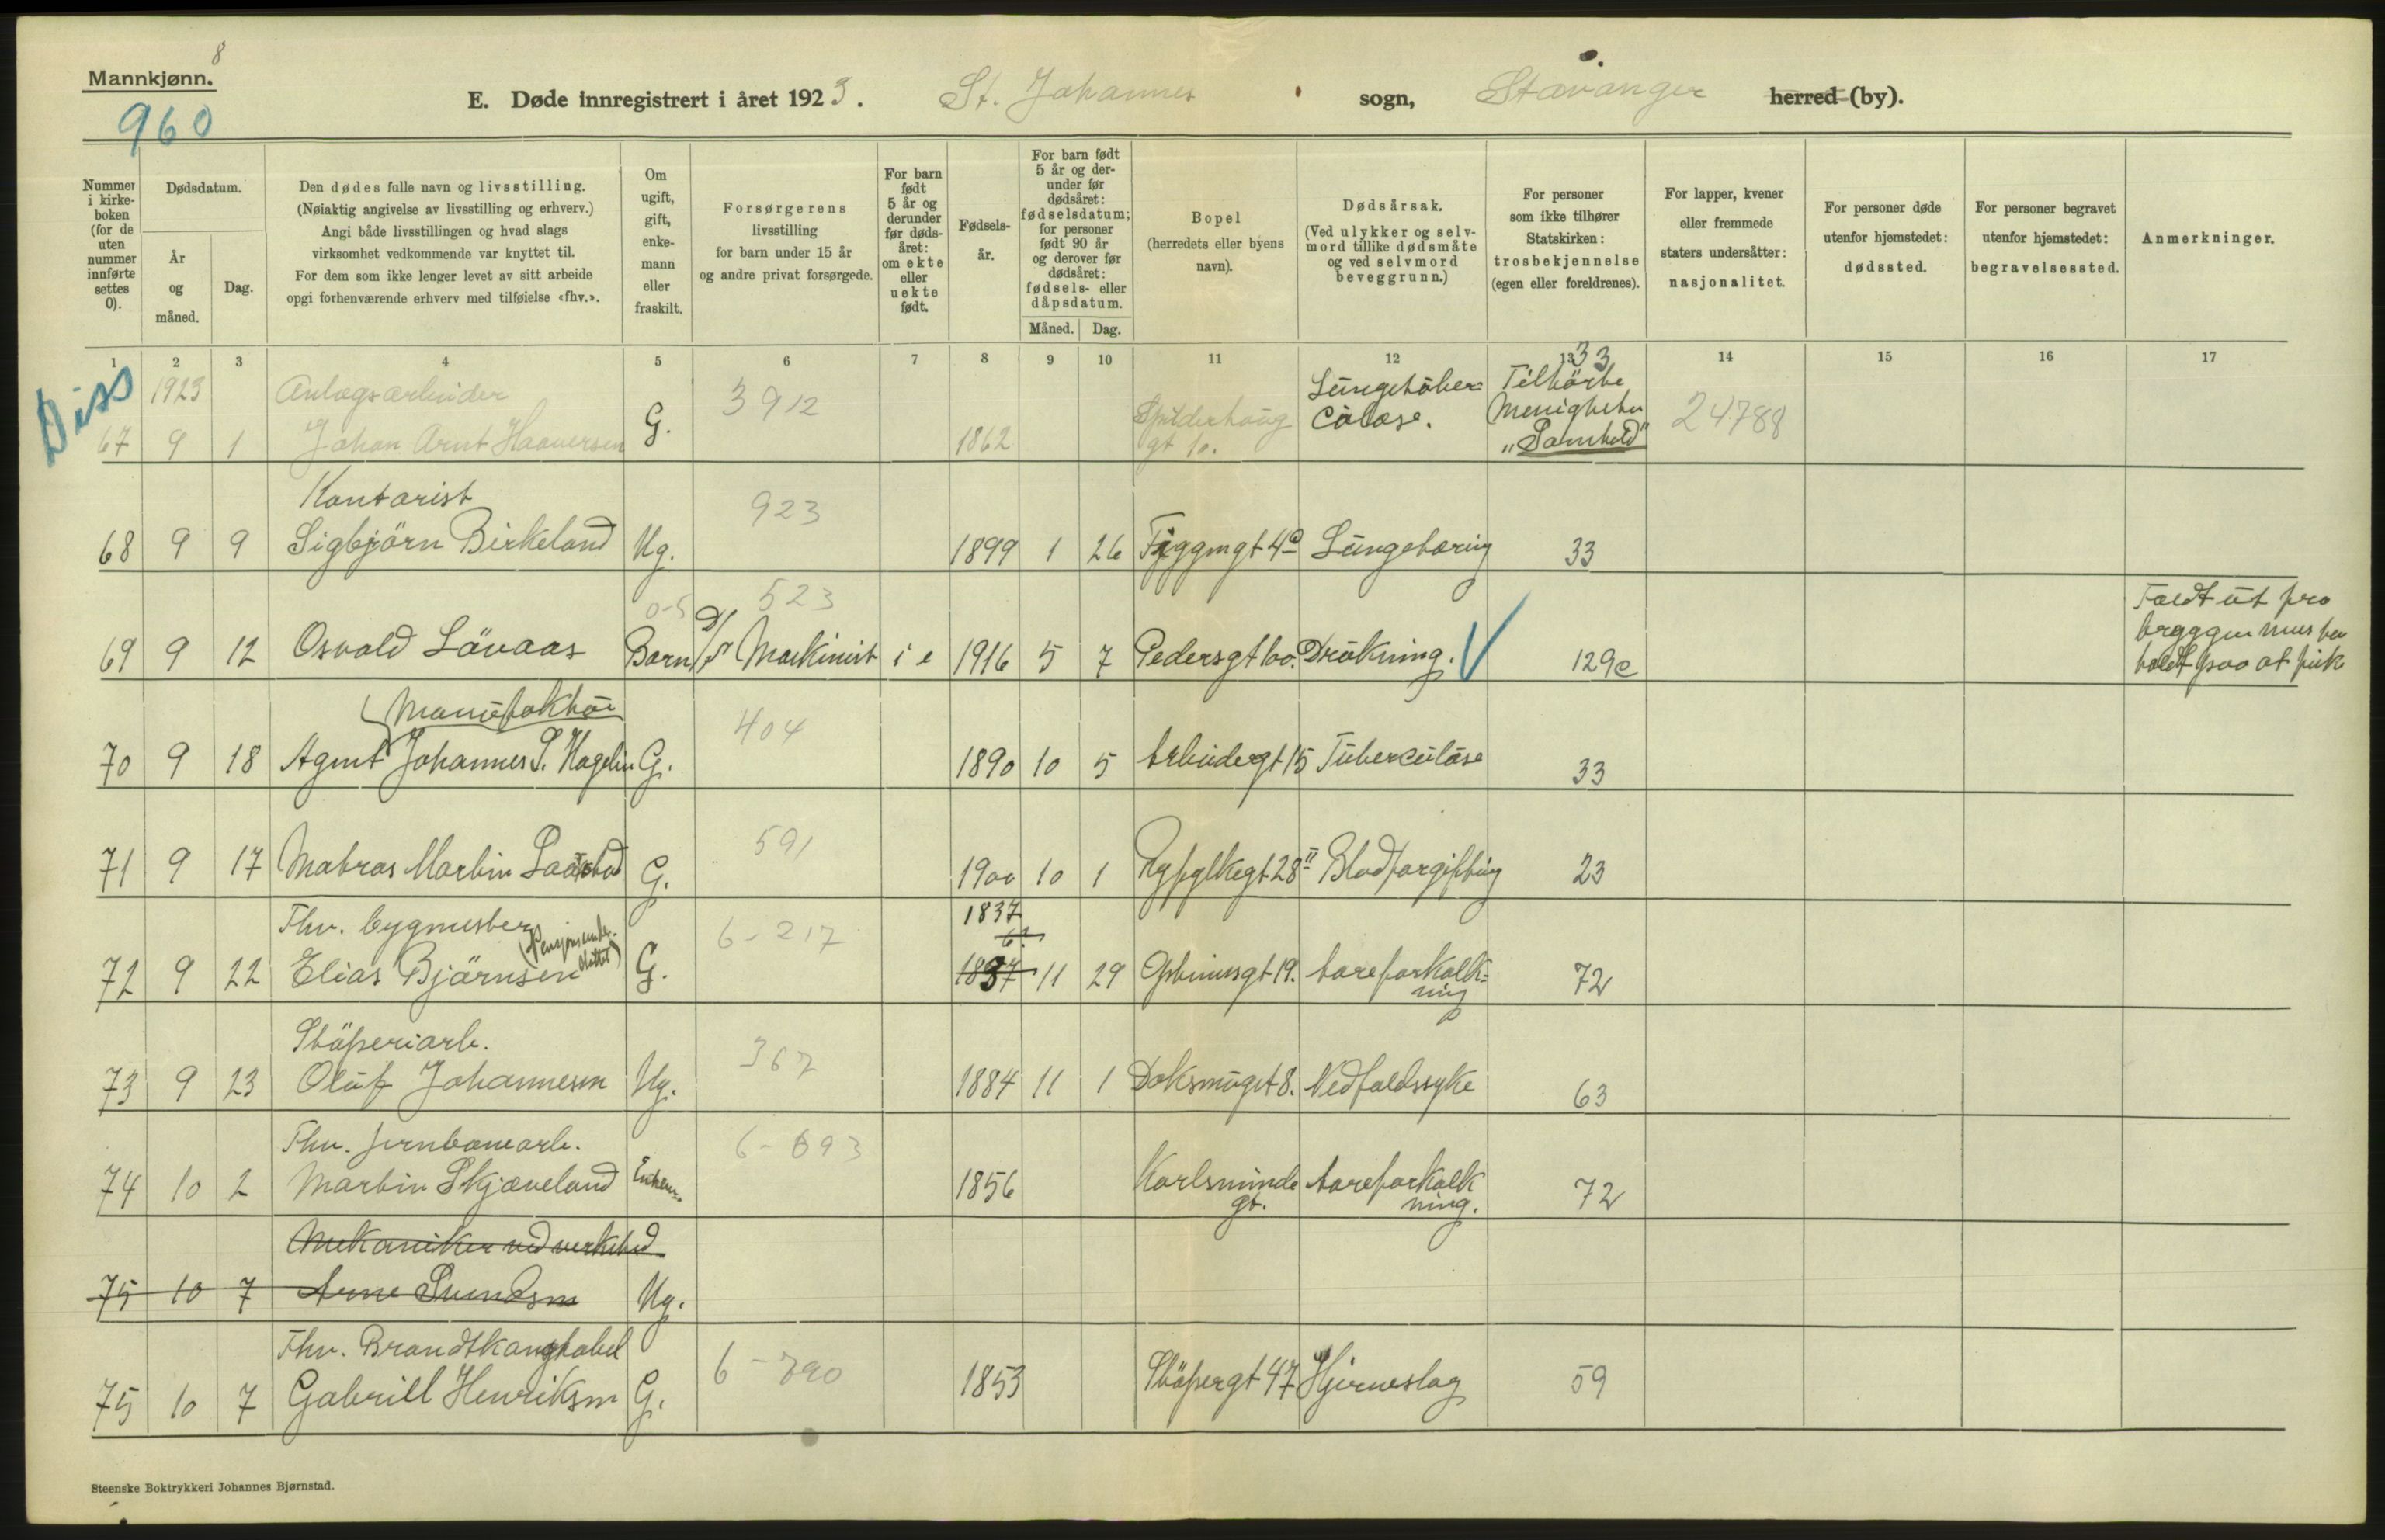 8
Mannkjønn.
960
E. Døde innregistrert i året 1923. St. Johannes sogn, Stavanger herred (by).
Nummer i kirke-boken (for de uten nummer innførte settes 0).
Dødsdatum.
År og måned.
Dag.
Den dødes fulle navn og livsstilling.
(Nøiaktig angivelse av livsstilling og erhverv.)
Angi både livsstillingen og hvad slags
virksomhet vedkommende var knyttet til.
For dem som ikke lenger levet av sitt arbeide
opgi forhenværende erhverv med tilføielse «fhv.».
Om ugift, gift, enke-mann eller fraskilt.
Forsørgerens
livsstilling
for barn under 15 år
og andre privat forsørgede.
For barn født 5 år og derunder før døds-året: om ekte eller uekte født.
Fødsels-år.
For barn født 5 år og der-under før dødsåret: fødselsdatum; for personer født 90 år og derover før dødsåret: fødsels- eller dåpsdatum.
Måned. Dag.
Bopel
(herredets eller byens
navn).
Dødsårsak.
(Ved ulykker og selv-
mord tillike dødsmåte
og ved selvmord
beveggrunn.)
For personer
som ikke tilhører
Statskirken:
trosbekjennelse
(egen eller foreldrenes).
For lapper, kvener
eller fremmede
staters undersåtter:
nasjonalitet.
For personer døde
utenfor hjemstedet:
dødssted.
For personer begravet
utenfor hjemstedet:
begravelsessted.
Anmerkninger.
1 2 3 4 5 6 7 8 9 10 11 12 13 14 15 16 17
Diss
33
1923 Anlægsarbeider 3912 Lungetuber= Tilhörte
67 9 1 Johan Arnt Haaversen G. 1862 Spilderhaug culose. Menigheten 24788
gt 10. „Samhold"
Kontorist 923
68 9 9 Sigbjörn Birkeland Ug. 1899 1 26 gt 4 Lungetæring 33
0-5 523 Faldt ut fra
69 9 12 Osvald Lövaas Barn d/s Maskinist i e 1916 5 7 Pedersgt 100. Drukning. V 129e bryggen mens han
holdt paa at fisk
(Manufaktur 404
70 9 18 Agent Johannes S. Hagelin G. 1890 10 5 Arbeidergt 15 Tuberculose 33
591
71 9 17 Matros Martin G. 1900 10 1 Ryfylkegt 28 II Blodforgiftning 23
Fhv. bygmester 6-217 1837
72 9 22 Elias Björnsen G. 1837 11 29 gt 19. Aareforkalk=
ning 72
Stöperiarb. 367
73 9 23 Oluf Johannesen Ug. 1884 11 1 Doksmugt 8. Nedfaldssyke 63
Fhv. jernbanearb. 6-693
74 10 2 Martin Skjæveland Enkem. 1856 Karlsminde Aareforkalk 72
gt. ning.
Mekaniker ved verksted
75 10 7 Arne Svendsen Ug.
Fhv. Brandtkonstabel 6-790
75 10 7 Gabriell Henriksen G. 1853 Stöpergt 47 Hjerneslag 59
Steenske Boktrykkeri Johannes Bjørnstad.